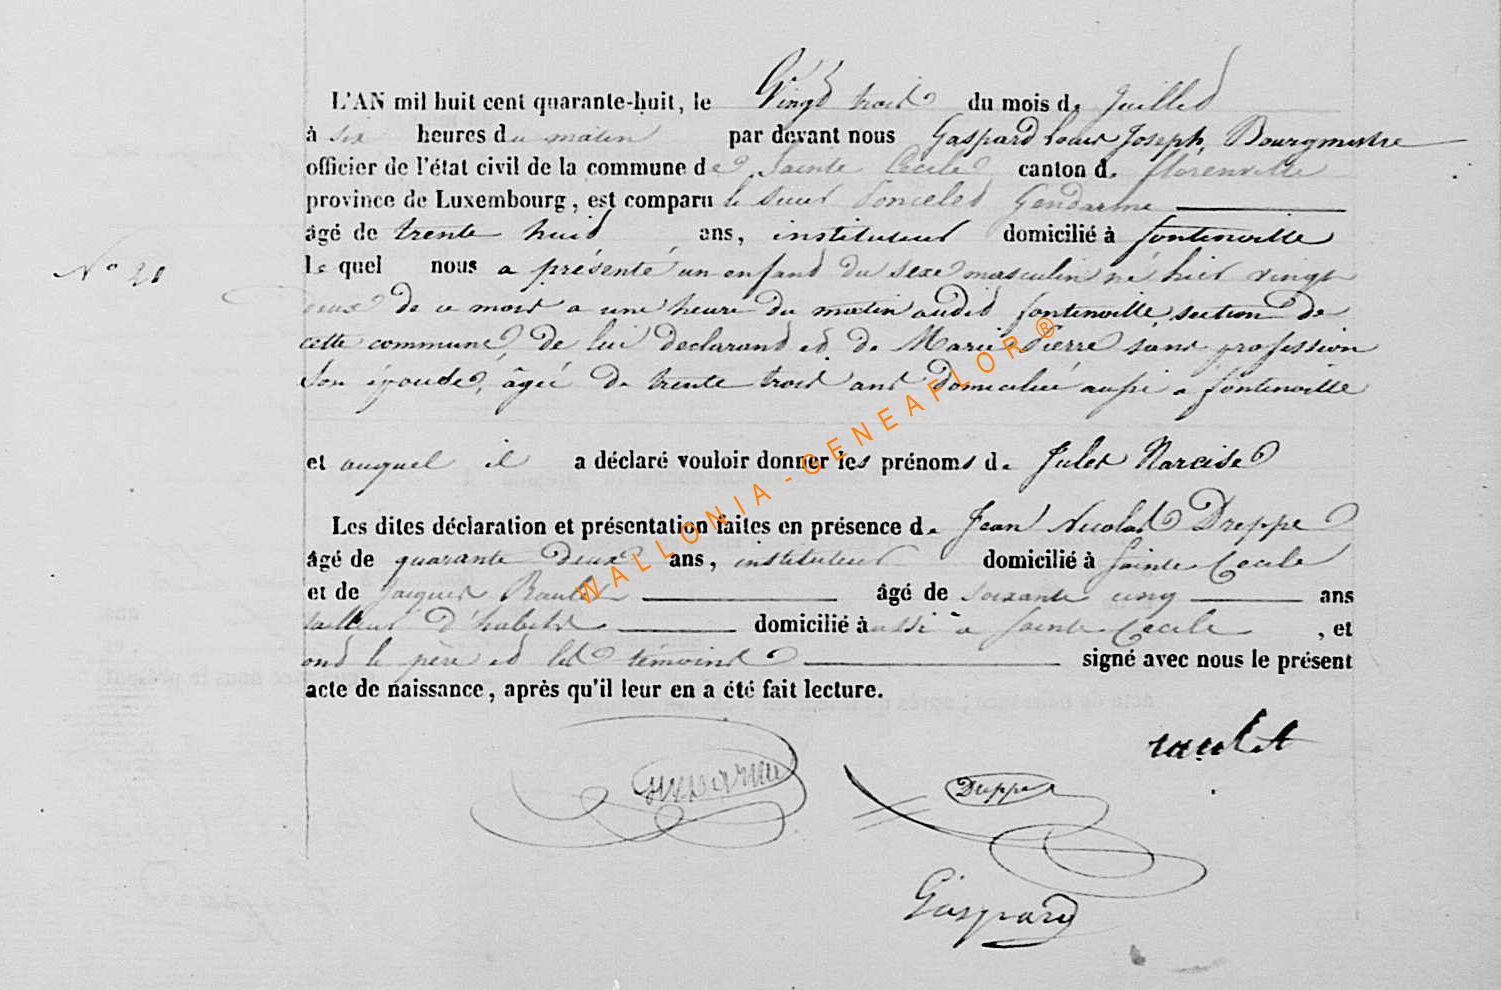 L'AN mil huit cent quarante-huit, le Vingt trois du mois de Juillet
à six heures du matin par devant nous Gaspard Louis Joseph, Bourgmestre
officier de l'état civil de la commune de Sainte Cecile canton de florenville
province de Luxembourg, est comparu le sieur Poncelet Gendarme
âgé de trente huit ans, instituteur domicilié à fontenoille
N° 21
le quel nous a présenté un enfant du sexe masculin né hier vingt
deux de ce mois a une heure du matin audit fontenoille section de
cette commune, de lui declarant et de Marie Pierre sans profession
Son épouse, âgée de trente trois ans domiciliée aussi a fontenoille
et auquel il a déclaré vouloir donner les prénoms de Jules Narcise
Les dites déclaration et présentation faites en présence de Jean Nicolas Dreppe
âgé de quarante deux ans, instituteur domicilié à Sainte Cecile
et de Jacques Raulet âgé de soixante cinq ans
tailleur d'habits domicilié à aussi à Sainte Cecile, et
ont le père et les témoins signé avec nous le présent
acte de naissance, après qu'il leur en a été fait lecture.
raulet
Dreppe
Gaspard
WALLONIA-GENEAFLOR®